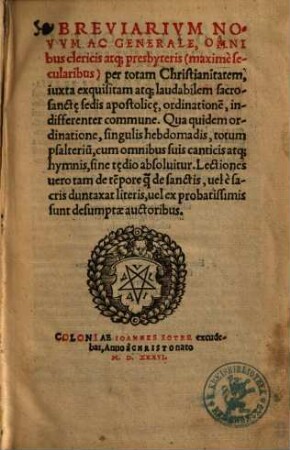 BREVIARIVM NO
VVM AC GENERALE, OMNI
bus clericis atq; presbyteris (maximè se
cularibus) per totam Christianitatem,
iuxta exquisitam atq; laudabilem sacro-
sanctę sedis apostolicę, ordinationē, in-
differenter commune. Qua quidem or-
dinatione, singulis hebdomadis, totum
psalteriũ, cum omnibus suis canticis atq;
hymnis, sine tędio absoluitur. Lectiones
uero tam de tēpore q̃ de sanctis, uel è sa-
cris duntaxat literis, uel ex probatissimis
sunt desumptæ auctoribus.
COLONIAE IOANNES SOTER excude-
bat, Anno à CHRISTO nato
M. D. XXXVI.